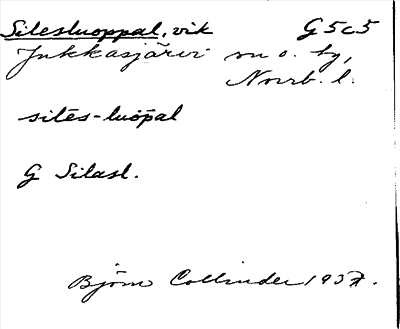 Silesluoppal, vik G5c5
Jukkasjärvi sn o. by,
Norrb. l.
silēs-luōpal
G Silasl.
Björn Collinder 1937.